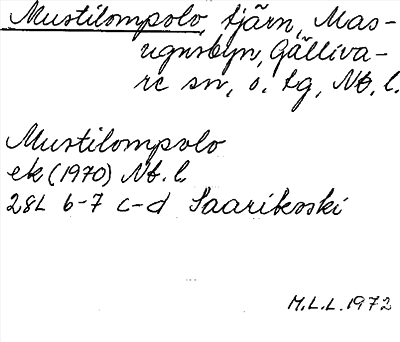 Mustilompolo, tjärn, Mas-
ugnsbyn, Gälliva-
re sn, o. tg, Nb. l.
Mustilompolo
ek (1970) Nb. l.
28L 6-7 c-d Saarikoski
M.L.L. 1972